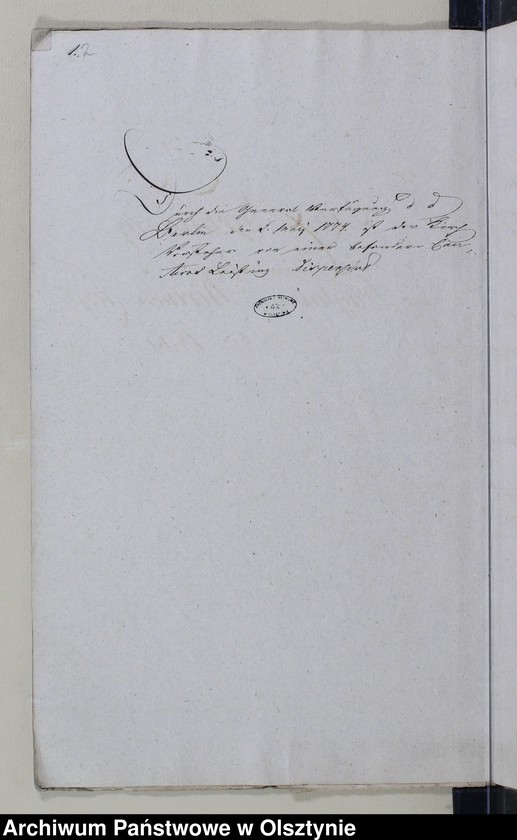 12
Durch die General Verfügung d d
Berlin den 2. May 1774. ist der Kirch
Vorsteher von einer besondern Cau
Leistung dispensirt
Archiwum Państwowe w Olsztynie